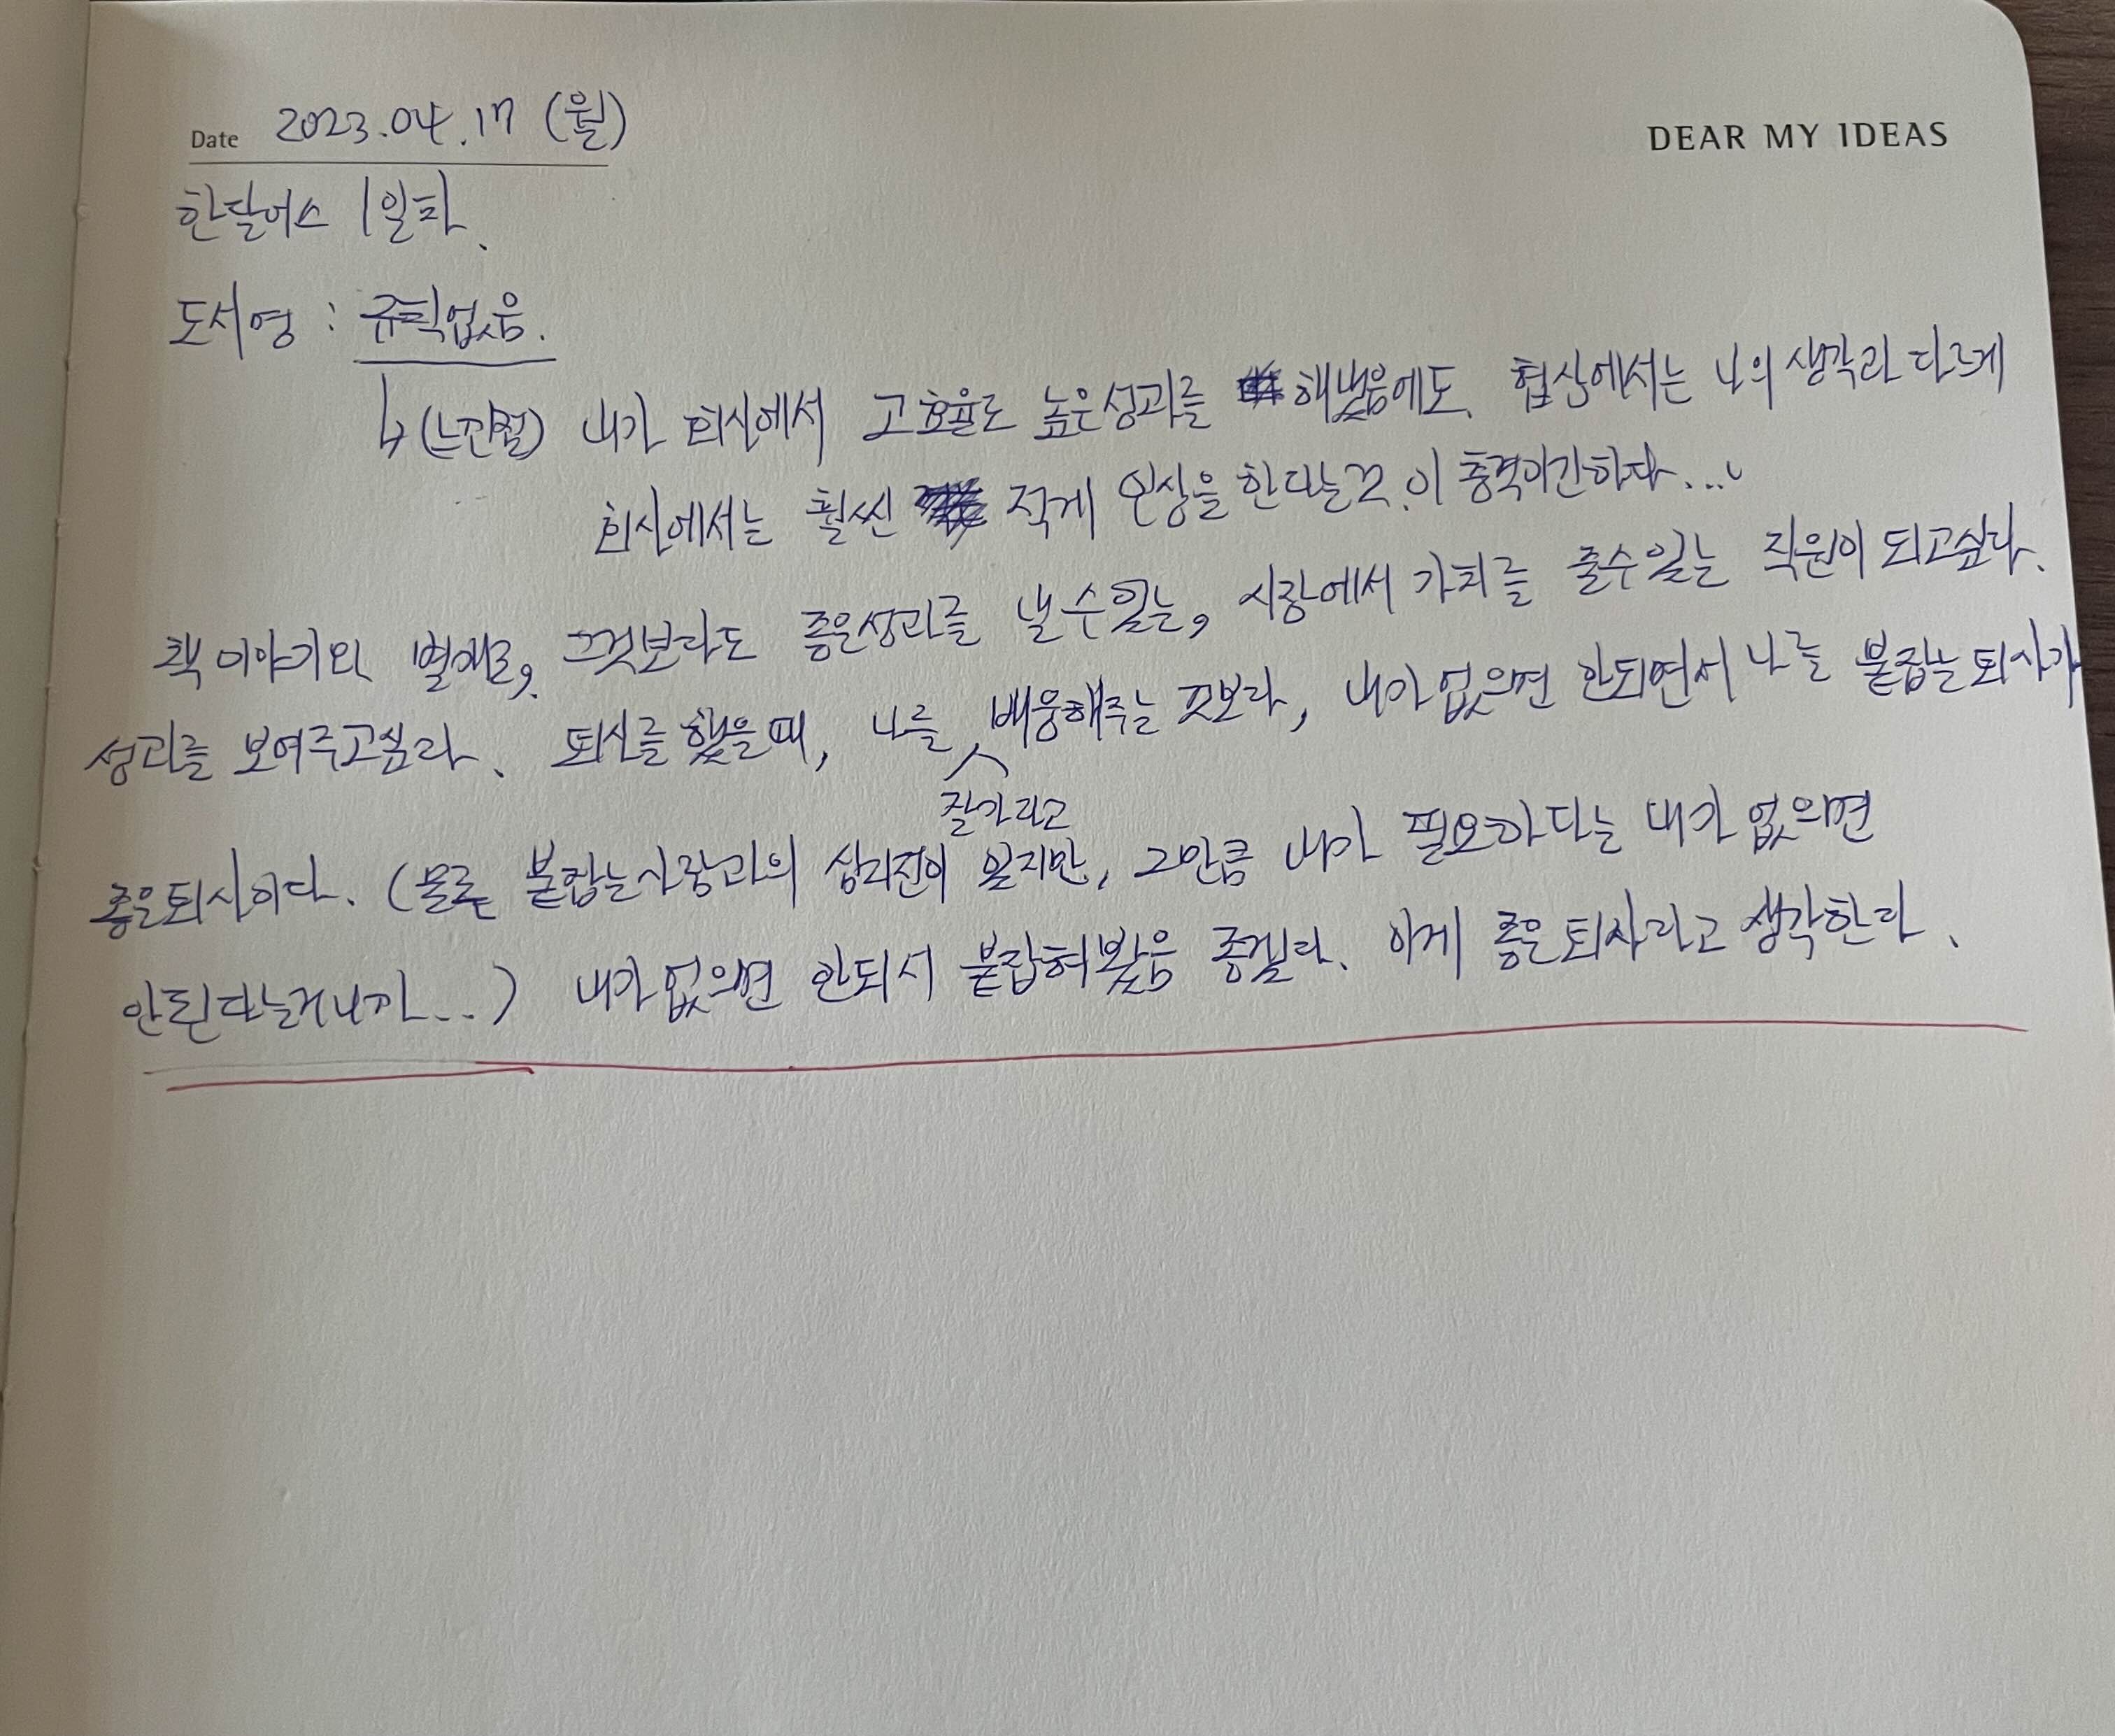 Date 2023.04.17 (월)
DEAR MY IDEAS
한달어스 1일차.
도서명 : 규칙없음.
↳(느낀점) 내가 회사에서 고효율로 높은성과를 해냈음에도, 협상에서는 나의 생각과 다르게
회사에서는 훨씬 적게 인상을 한다는고.이 충격이긴하다...
책 이야기와 별개로, 그것보다도 좋은성과를 낼수있는, 시장에서 가치를 줄수있는 직원이 되고싶다.
성과를 보여주고싶다. 퇴사를 했을때, 나를 배웅해주는 것보다, 내가 없으면 안되면서 나를 붙잡는 퇴사가
잘가라고
좋은퇴사이다. (물론 붙잡는사람과의 심리전이 있지만, 그만큼 내가 필요하다는 내가 없으면
안된다는거니까...) 내가 없으면 안되서 붙잡혀봤음 좋겠다. 이게 좋은 퇴사라고 생각한다.